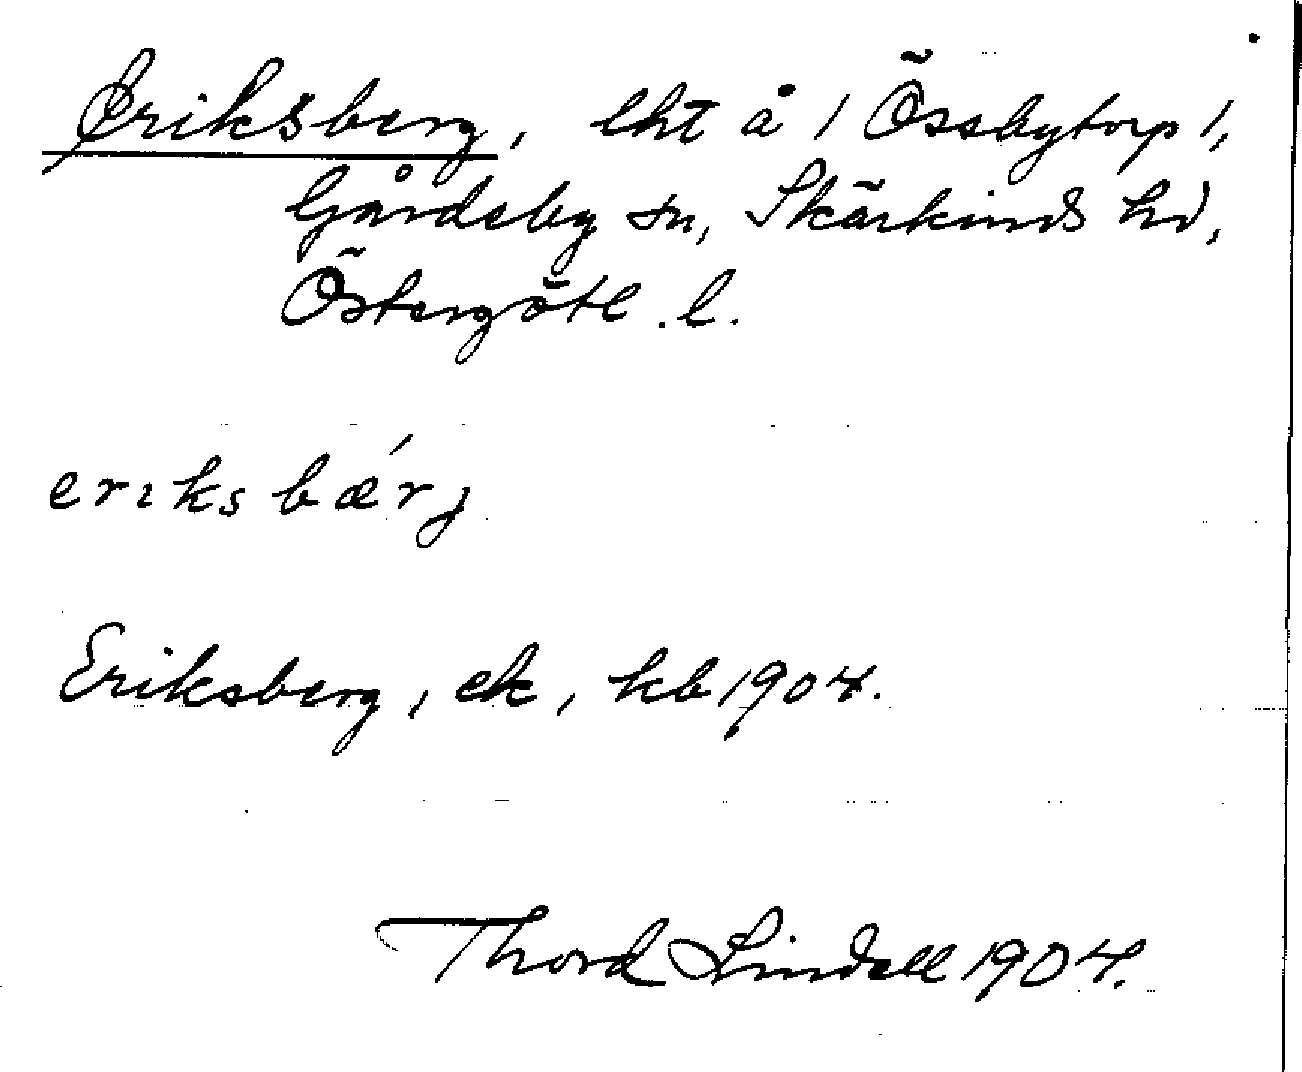 Eriksberg, lht å / Össebytorp /,
Gårdeby sn, Skärkinds hd,
Östergötl. l.
eriksbǽrj
Eriksberg, ek, kb 1904.
Thord Lindell 1904.